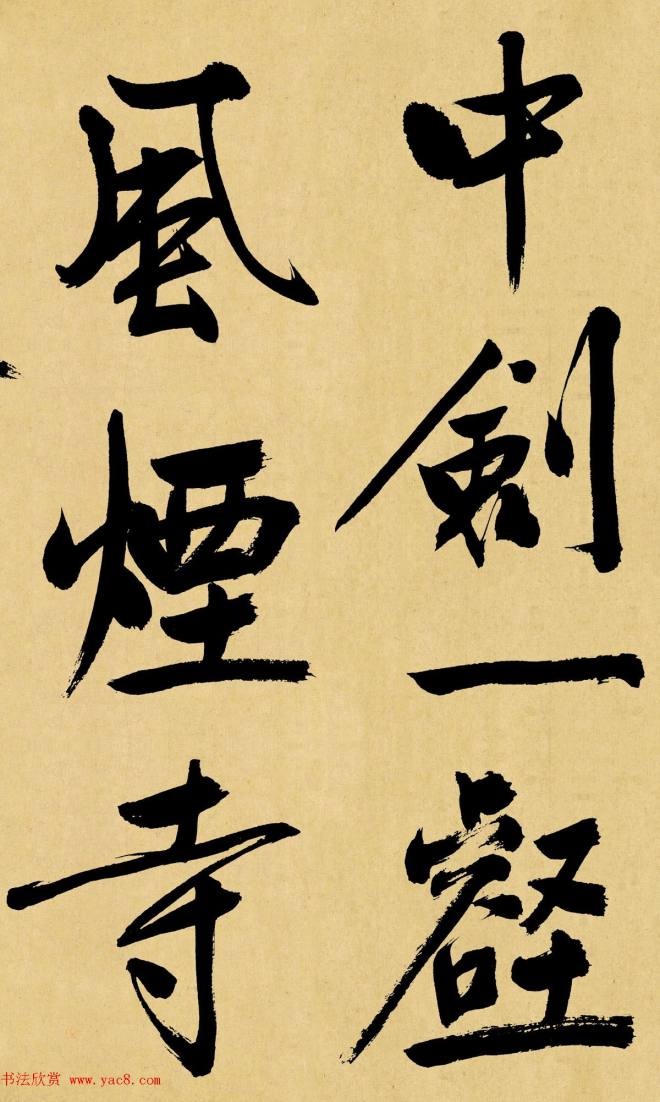 中劍一壑
風煙寺
书法欣赏 www.yac8.com